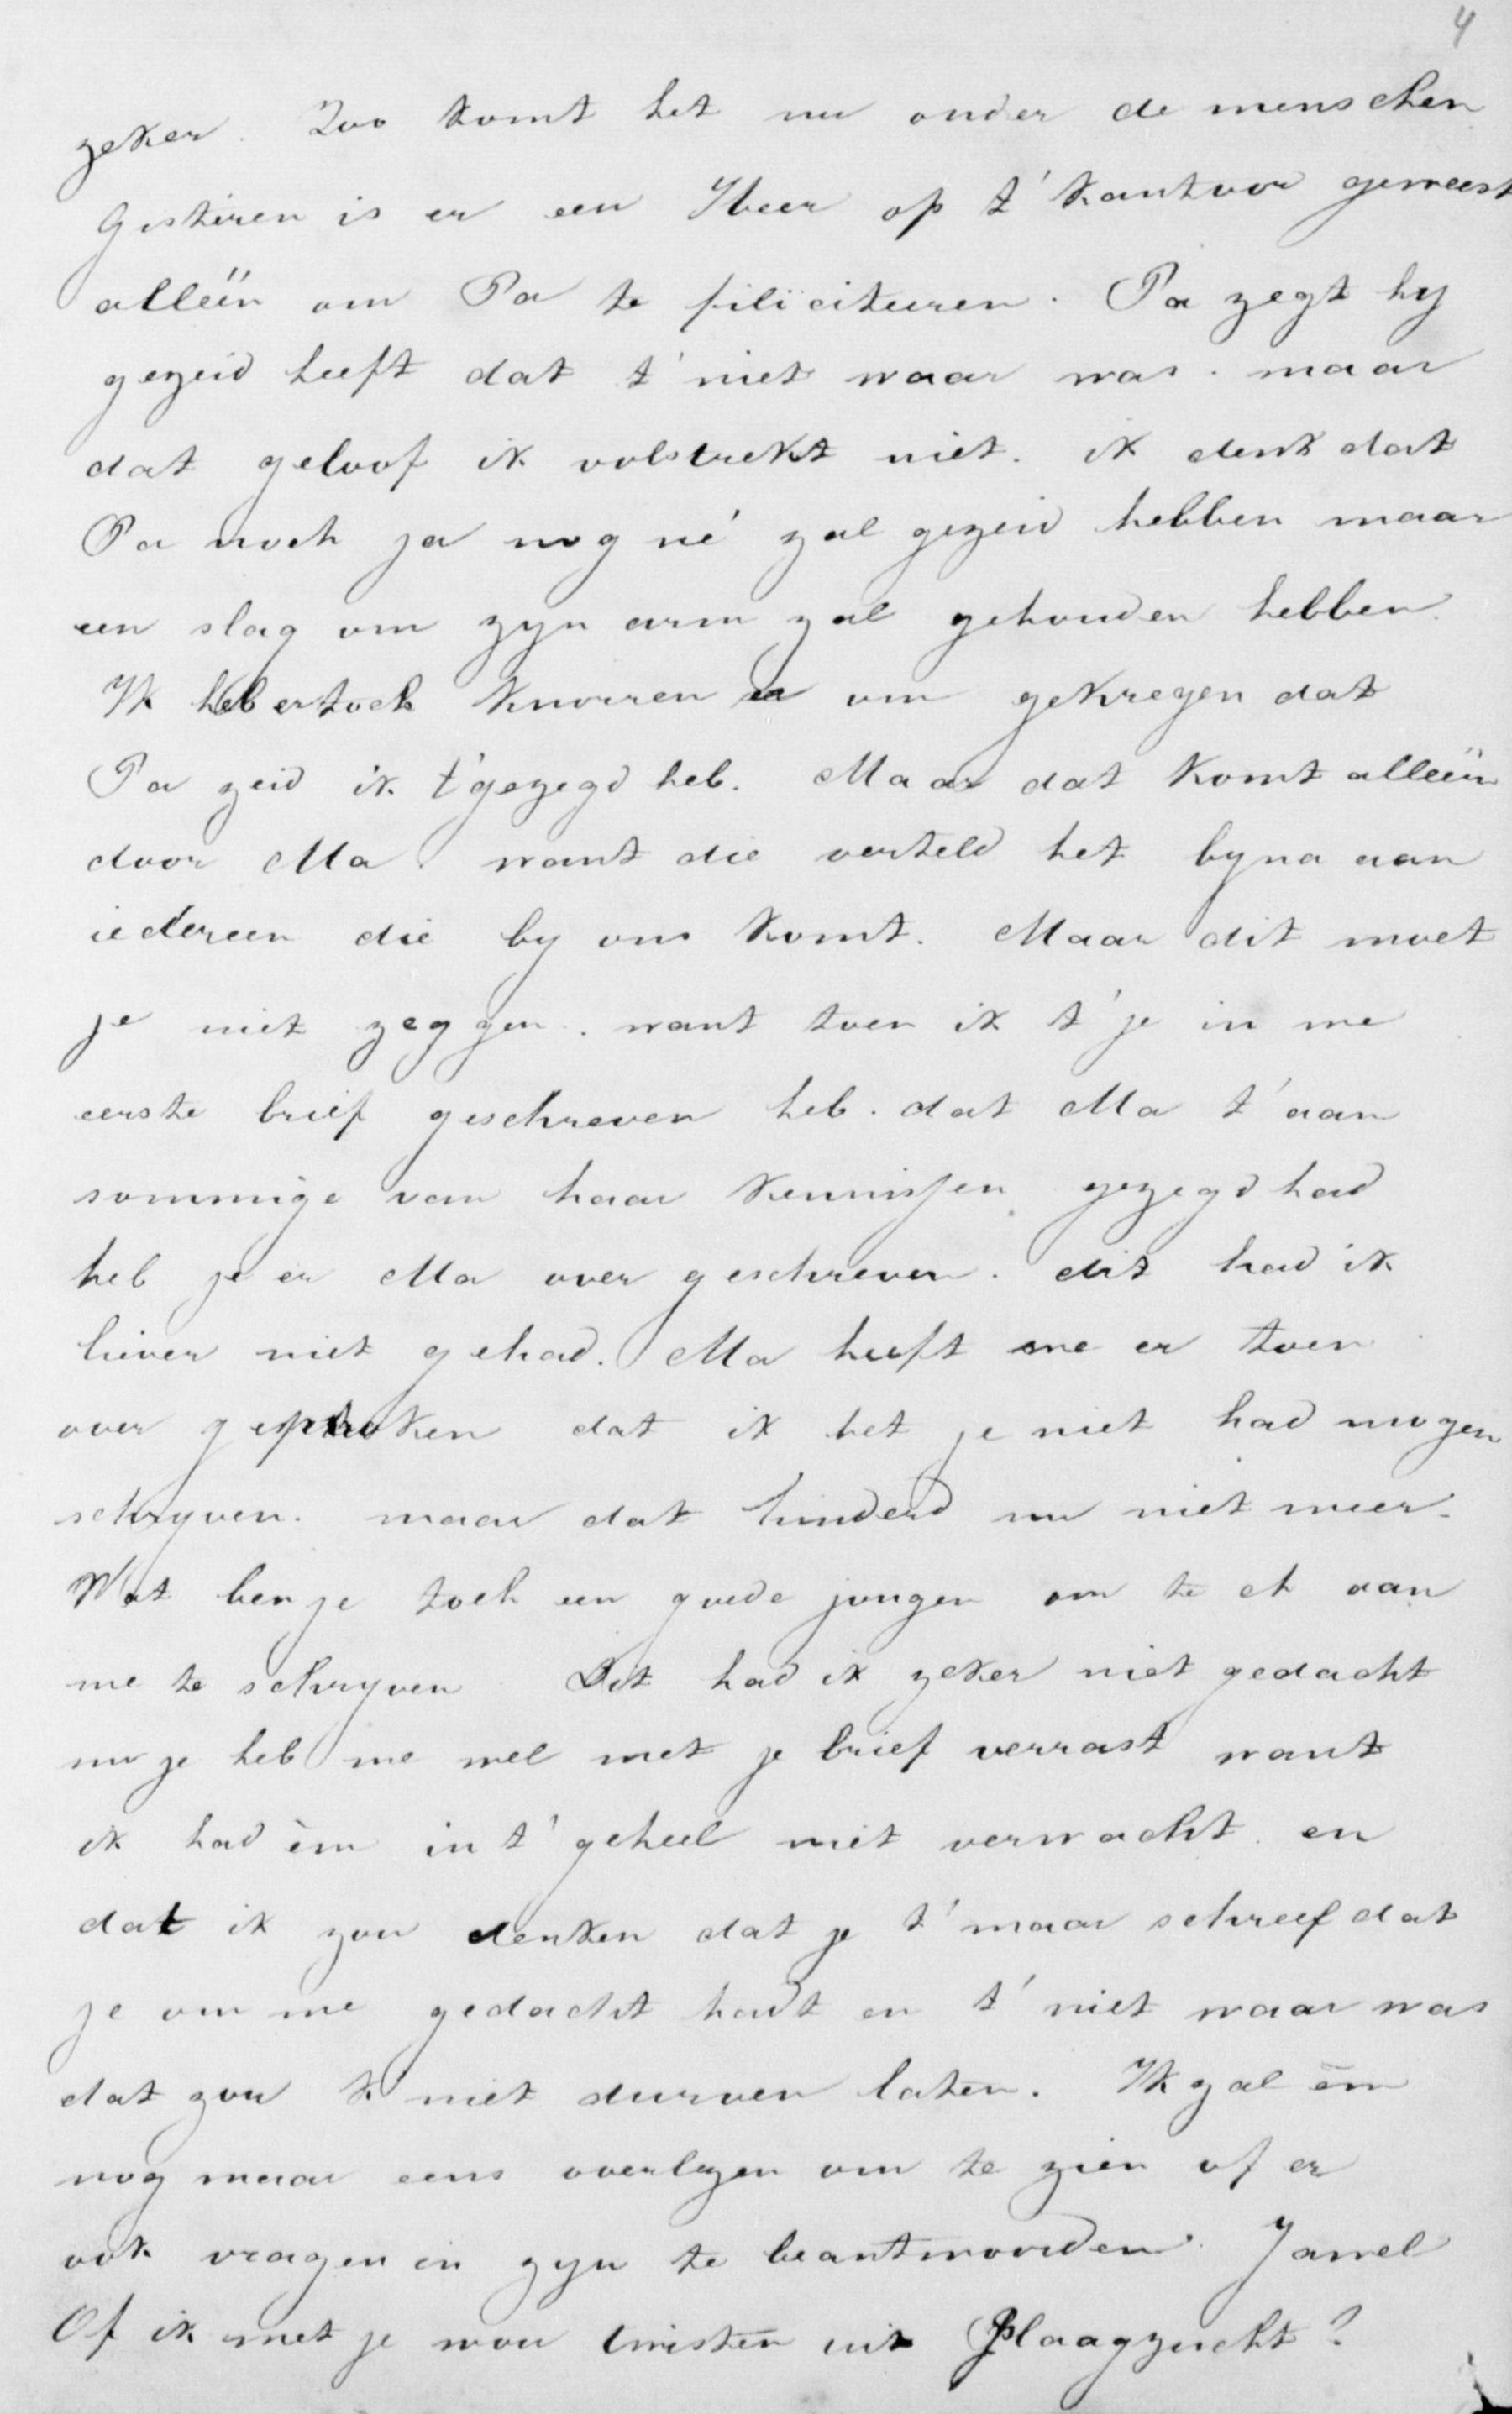 4
zeker. Zoo komt het nu onder de menschen
Gisteren is er een Heer op t' kantoor geweest
alleën om Pa te filiciteeren. Pa zegt hy
gezeid heeft dat t' niet waar was. maar
dat geloof ik volstrekt niet. ik denk dat
Pa noch ja nog né zal gezeid hebben maar
een slag om zyn arm zal gehouden hebben.
Ik heb er toch knorren om gekregen dat
Pa zeid ik t'gezegd heb. Maar dat komt alleën
door Ma. want die verteld het byna aan
iedereen die by ons komt. Maar dit moet
je niet zeggen. want toen ik t' je in me
eerste brief geschreven heb. dat Ma t' aan
sommige van haar kennissen gezegd had
heb je er Ma over geschreven. dit had ik
liever niet gehad. Ma heeft me er toen
over gesproken dat ik het je niet had mogen
schryven. maar dat hinderd nu niet meer.
Wat ben je toch een goede jongen om te ek aan
me te schryven Dit had ik zeker niet gedacht
nu je heb me wel met je brief verrast want
ik had èm in t' geheel niet verwacht. en
dat ik zou denken dat je t' maar schreef dat
je om me gedacht hadt en t' niet waar was
dat zou k' niet durven laten. Ik zal èm
nog maar eens overlezen om te zien of er
ook vragen in zyn te beantwoorden. Jawel
Of ik met je wou twisten uit Plaagzucht?